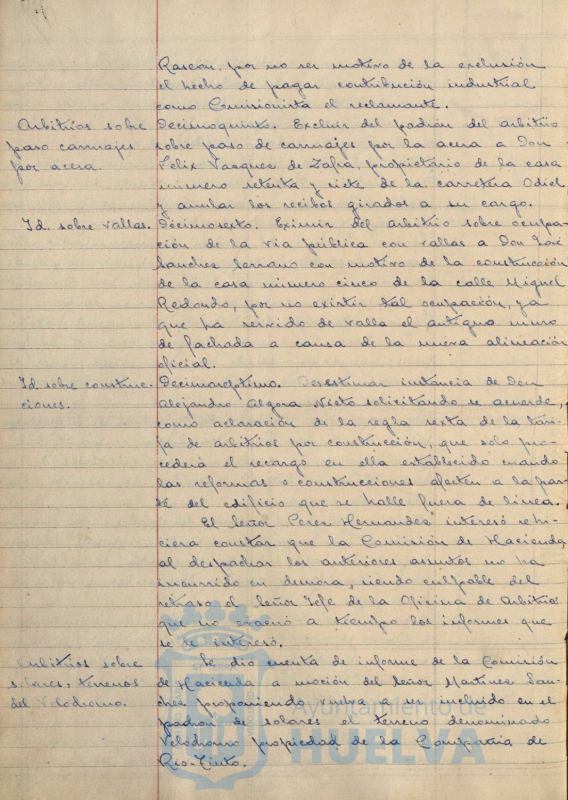 Rascon, por no ser motivo de la exclusión
el hecho de pagar contribución industrial
como Comisionista el reclamante.
Arbitrios sobre
paso carruajes
por acera.
Decimoquinto. Excluir del padrón del arbitrio
sobre paso de carruajes por la acera a Don
Felix Vazquez de Zafra, propietario de la casa
número setenta y siete de la carretera Odiel
y anular los recibos girados a su cargo.
Id. sobre vallas.
Décimosexto. Eximir del arbitrio sobre ocupa-
ción de la via pública con vallas a Don José
Sanchez Serrano con motivo de la construcción
de la casa número cinco de la calle Miguel
Redondo, por no existir tal ocupación, ya
que ha servido de valla el antiguo muro
de fachada a causa de la nueva alineación
oficial.
Id. sobre construc-
ciones.
Decimoseptimo. Desestimar instancia de Don
Alejandro Algora Nieto solicitando se acuerde,
como aclaración de la regla sexta de la tari-
fa de arbitrios por construcción, que solo pro-
cederá el recargo en ella establecido cuando
las reformas o construcciones afecten a la par-
te del edificio que se halle fuera de linea.
El Señor Perez Hernandez interesó se hi-
ciera constar que la Comisión de Hacienda,
al despachar los anteriores asuntos no ha
incurrido en demora, siendo culpable del
retraso el Señor Jefe de la Oficina de Arbitrios
que no evacuó a tiempo los informes que
se le interesó.
Arbitrios sobre
solares: terrenos
del Velodromo.
Se dio cuenta de informe de la Comisión
de Hacienda a moción del Señor Martinez San-
chez proponiendo vuelva a ser incluido en el
padrón de solares el terreno denominado
Velódromo propiedad de la Compañia de
Rio-Tinto.
Ayuntamiento de
HUELVA